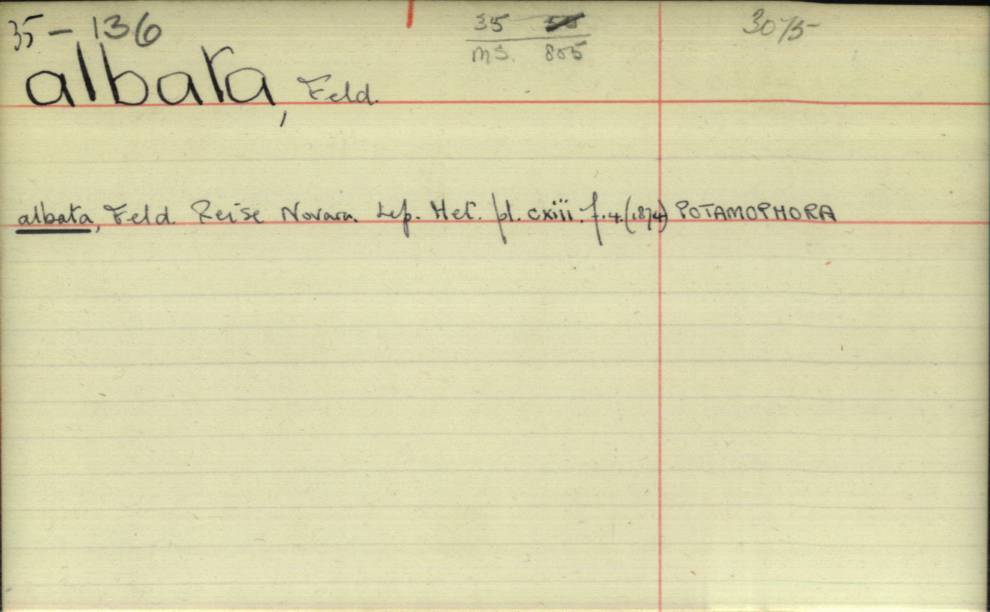 35-136
35
ms. 805
3075
albata, Feld.
albata, Feld. Reise Novara. Lep. Het. pl. cxiii. f. 4. (1874) POTAMOPHORA